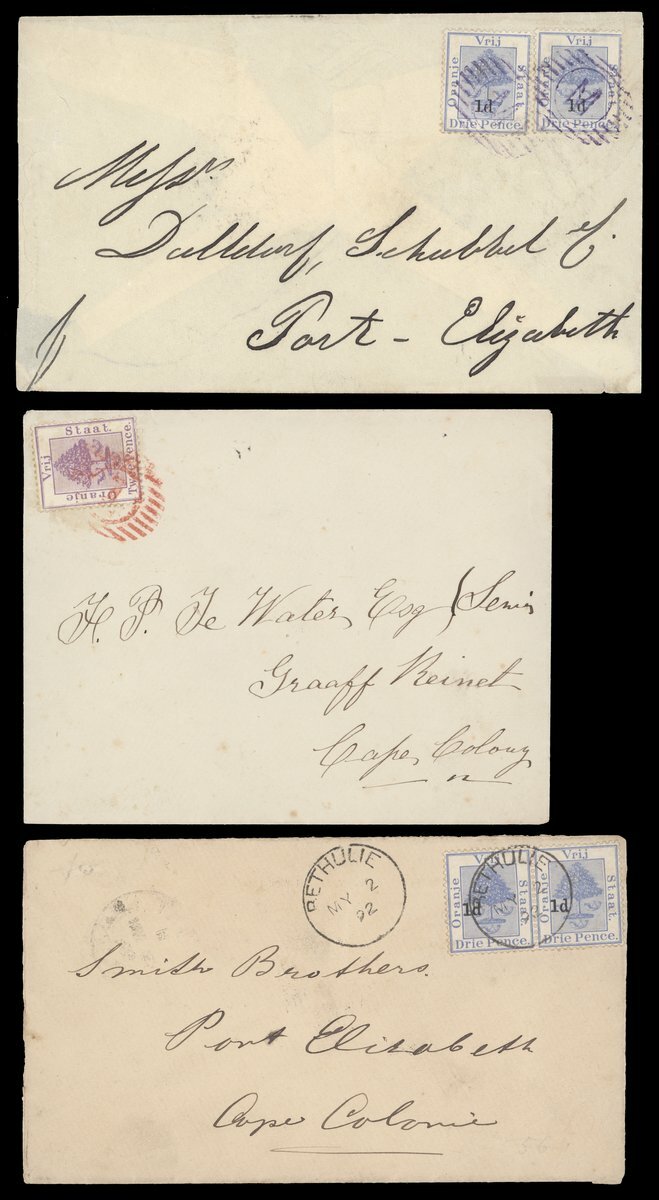 Vrij Vrij
Oranje Staat. Oranje Staat.
1d 1d
Drie Pence. Drie Pence.
Messrs
Dalldorf, Schabbel &
Port - Elizabeth
Vrij Staat.
Oranje
Twee Pence.
H. P. Te Water, Esq (Senior
Graaff Reinet
Cape Colony
BETHULIE
MY 2
92
BETHULIE
MY 2
Vrij Vrij
Oranje Staat. Oranje Staat.
1d 1d
Drie Pence. Drie Pence.
Smith Brothers.
Port Elisabeth
Cape Colonie